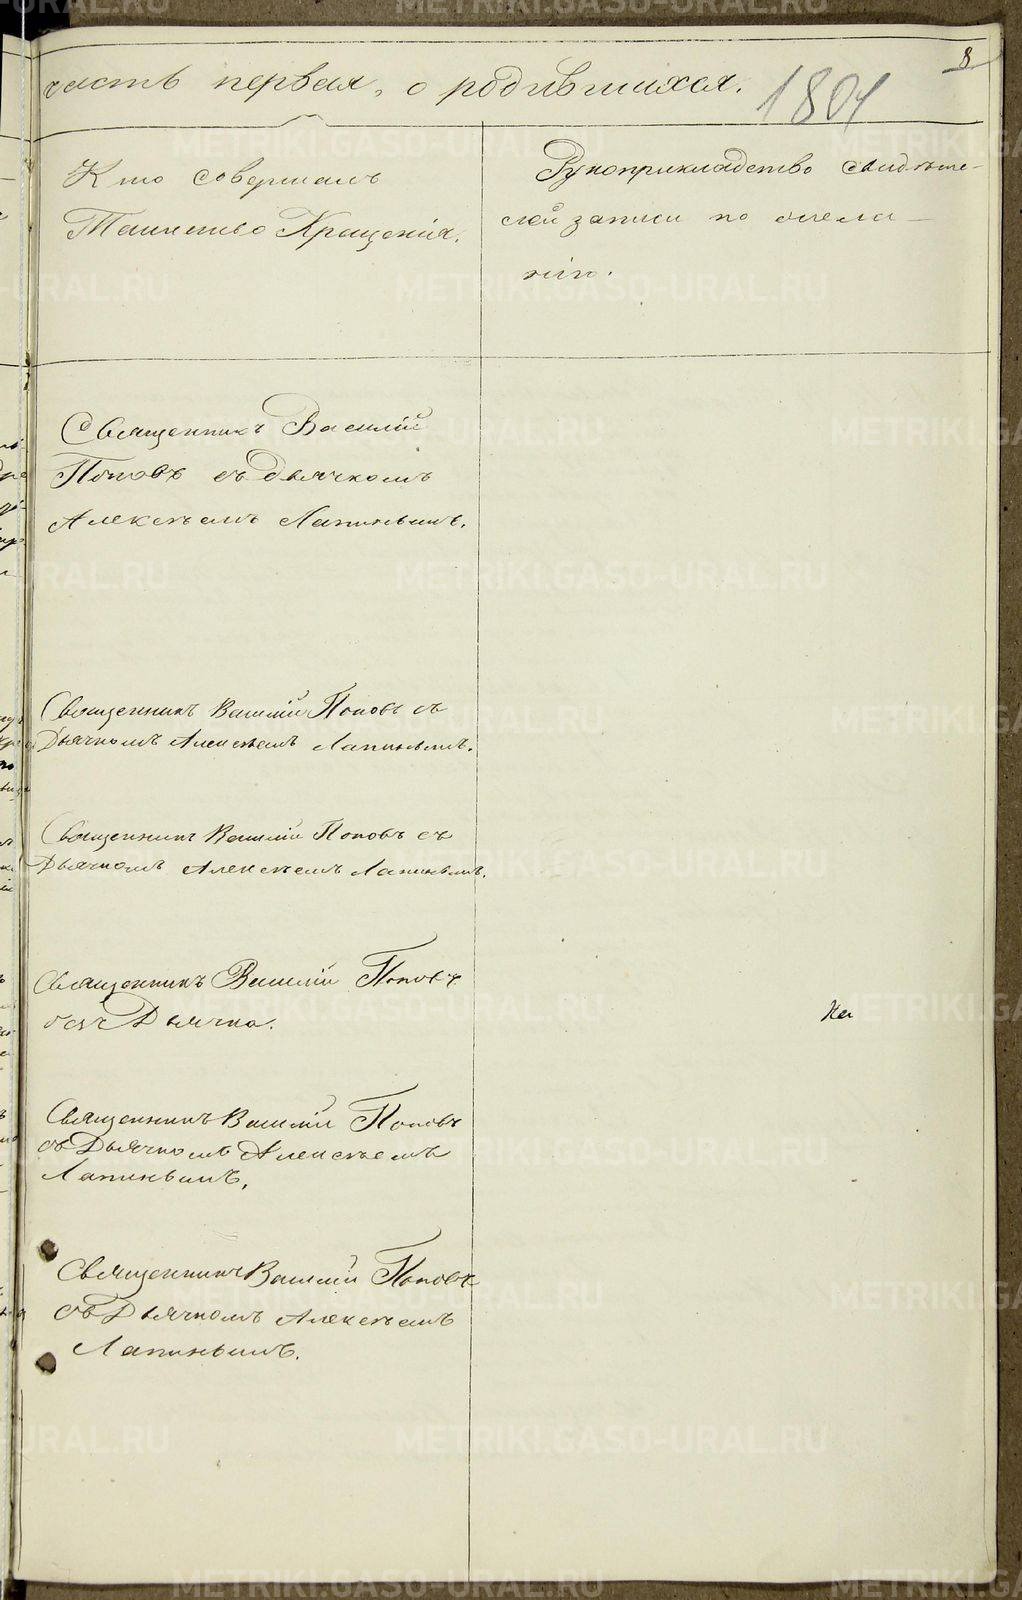 8
часть первая, о родившихся.
1801
Кто совершалъ
Таинство Крещенія.
Рукоприкладство свидѣте-
лей записи по желa-
нію.
Священникъ Василій
Поповъ съ дьячкомъ
Алексѣемъ Лапинымъ.
Священникъ Василій Поповъ съ
Дьячкомъ Алексѣемъ Лапинымъ.
Священникъ Василій Поповъ съ
Дьячкомъ Алексѣемъ Лапинымъ.
Священникъ Василій Поповъ
безъ Дьячка.
Священникъ Василій Поповъ
съ Дьячкомъ Алексѣемъ
Лапинымъ.
Священникъ Василій Поповъ
съ Дьячкомъ Алексѣемъ
Лапинымъ.
METRIKI.GASO-URAL.RU